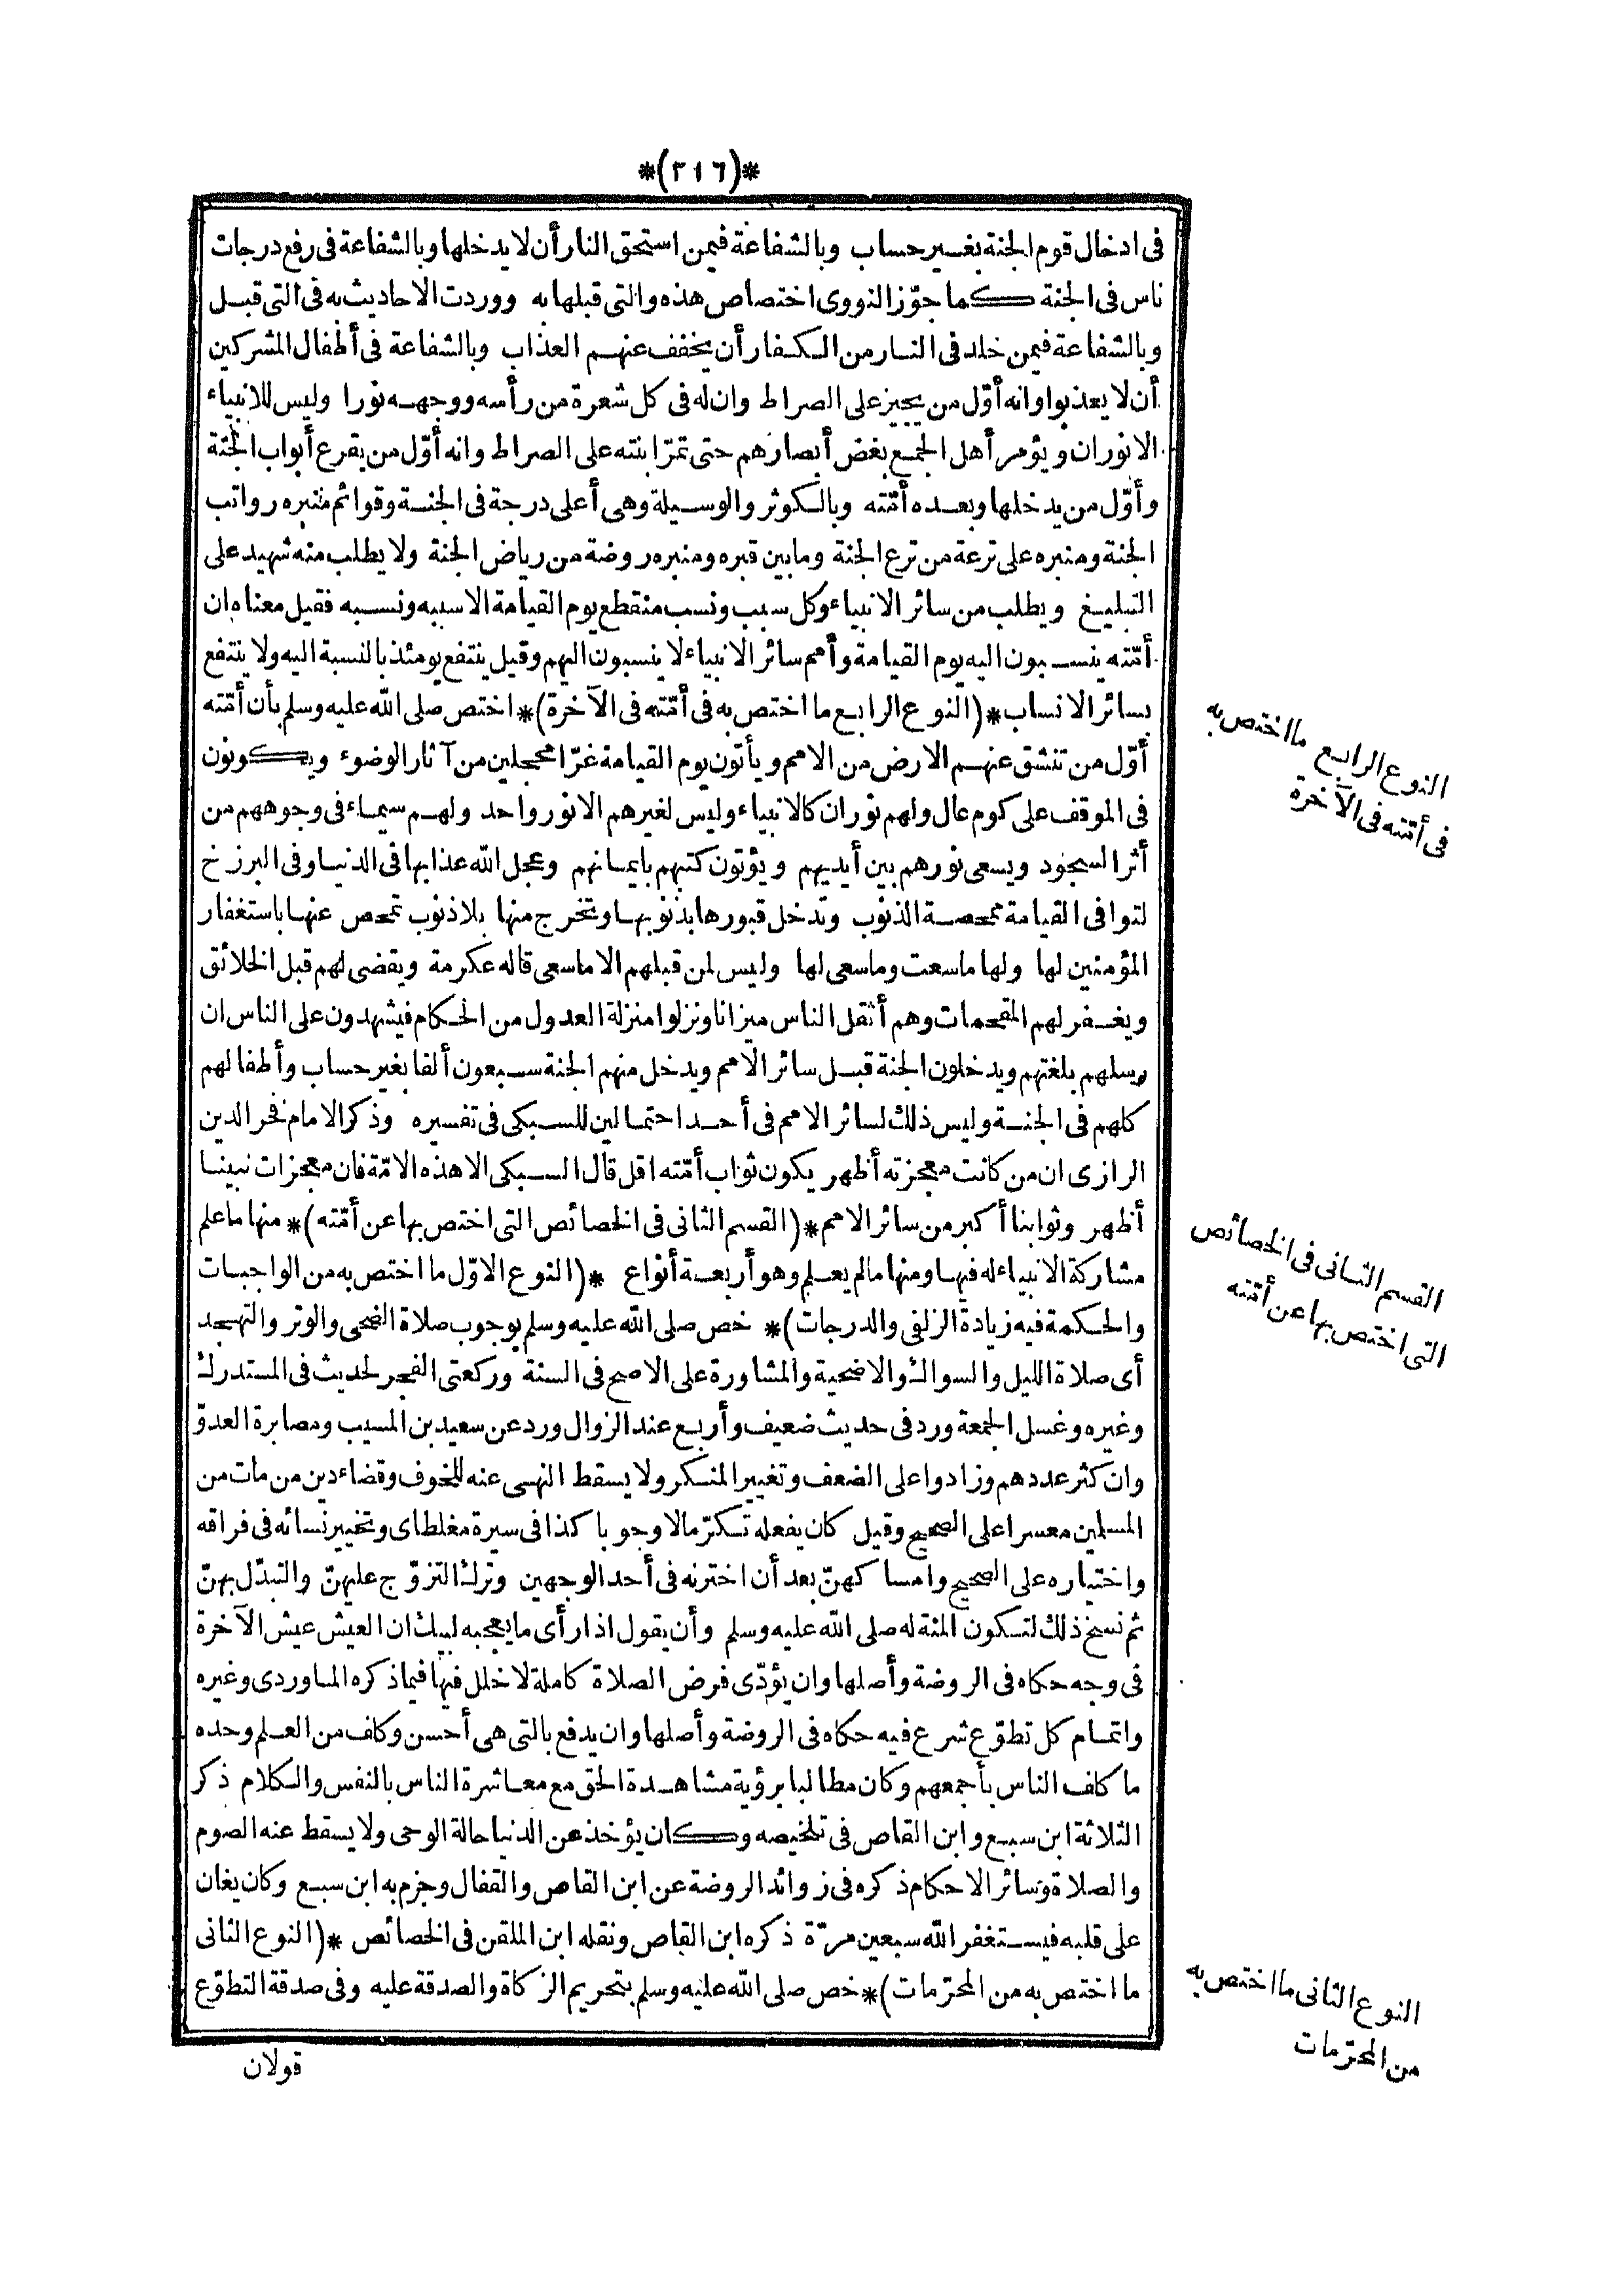 *(٢١٦)*
فى ادخال قوم الجنة بغير حساب وبالشفاعة فيمن استحق النار أن لا يدخلها وبالشفاعة فى رفع درجات
ناس فى الجنة كما جوّز النووى اختصاص هذه والتى قبلها به ووردت الاحاديث به فى التى قبل
وبالشفاعة فيمن خلد فى النار من الكفار أن يخفف عنهم العذاب وبالشفاعة فى أطفال المشركين
أن لا يعذبوا وانه أوّل من يجيز على الصراط وان له فى كل شعرة من رأسه ووجهه نورا وليس للانبياء
الا نوران ويؤمر أهل الجمع بغض أبصارهم حتى تمرّ ابنته على الصراط وانه أوّل من يقرع أبواب الجنة
وأوّل من يدخلها وبعده أمّته وبالكوثر والوسيلة وهى أعلى درجة فى الجنة وقوائم منبره رواتب
الجنة ومنبره على ترعة من ترع الجنة وما بين قبره ومنبره روضة من رياض الجنة ولا يطلب منه شهيد على
التبليغ ويطلب من سائر الانبياء وكل سبب ونسب منقطع يوم القيامة الا سببه ونسبه فقيل معناه ان
أمّته ينسبون اليه يوم القيامة وأمم سائر الانبياء لا ينسبون اليهم وقيل ينتفع يومئذ بالنسبة اليه ولا ينتفع
بسائر الانساب *(النوع الرابع ما اختص به فى أمّته فى الآخرة)* اختص صلى الله عليه وسلم بأن أمّته
أوّل من تنشق عنهم الارض من الامم ويأتون يوم القيامة غرّا محجلين من آثار الوضوء ويكونون
فى الموقف على كوم عال ولهم نوران كالانبياء وليس لغيرهم الا نور واحد ولهم سيماء فى وجوههم من
أثر السجود ويسعى نورهم بين أيديهم ويؤتون كتبهم بايمانهم وعجل الله عذابها فى الدنيا وفى البرزخ
لتوافى القيامة ممحصة الذنوب وتدخل قبورها بذنوبها وتخرج منها بلا ذنوب تمحص عنها باستغفار
المؤمنين لها ولها ما سعت وما سعى لها وليس لمن قبلهم الا ما سعى قاله عكرمة ويقضى لهم قبل الخلائق
ويغفر لهم المقحمات وهم أثقل الناس ميزانا ونزلوا منزلة العدول من الحكام فيشهدون على الناس ان
رسلهم بلغتهم ويدخلون الجنة قبل سائر الامم ويدخل منهم الجنة سبعون ألفا بغير حساب وأطفالهم
كلهم فى الجنة وليس ذلك لسائر الامم فى أحد احتمالين للسبكى فى تفسيره وذكر الامام فخر الدين
الرازى ان من كانت معجزته أظهر يكون ثواب أمّته اقل قال السبكى الا هذه الامّة فان معجزات نبينا
أظهر وثوابنا أكبر من سائر الامم *(القسم الثانى فى الخصائص التى اختص بها عن أمّته)* منها ما علم
مشاركة الانبياء له فيها ومنها ما لم يعلم وهو أربعة أنواع *(النوع الاوّل ما اختص به من الواجبات
والحكمة فيه زيادة الزلفى والدرجات)* خص صلى الله عليه وسلم بوجوب صلاة الضحى والوتر والتهجد
أى صلاة الليل والسواك والاضحية والمشاورة على الاصح فى السنة وركعتى الفجر لحديث فى المستدرك
وغيره وغسل الجمعة ورد فى حديث ضعيف وأربع عند الزوال ورد عن سعيد بن المسيب ومصابرة العدوّ
وان كثر عددهم وزادوا على الضعف وتغيير المنكر ولا يسقط النهى عنه للخوف وقضاء دين من مات من
المسلمين معسرا على الصحيح وقيل كان يفعله تكرّما لا وجوبا كذا فى سيرة مغلطاى وتخيير نسائه فى فراقه
واختياره على الصحيح وامساكهنّ بعد أن اخترنه فى أحد الوجهين وترك التزوّج عليهنّ والتبدّل بهنّ
ثم نسخ ذلك لتكون المنة له صلى الله عليه وسلم وأن يقول اذا رأى ما يعجبه لبيك ان العيش عيش الآخرة
فى وجه حكاه فى الروضة وأصلها وان يؤدّى فرض الصلاة كاملة لا خلل فيها فيما ذكره الماوردى وغيره
واتمام كل تطوّع شرع فيه حكاه فى الروضة وأصلها وان يدفع بالتى هى أحسن وكلف من العلم وحده
ما كلف الناس بأجمعهم وكان مطالبا برؤية مشاهدة الحق مع معاشرة الناس بالنفس والكلام ذكر
الثلاثة ابن سبع وابن القاص فى تلخيصه وكان يؤخذ عن الدنيا حالة الوحى ولا يسقط عنه الصوم
والصلاة وسائر الاحكام ذكره فى زوائد الروضة عن ابن القاص والقفال وجزم به ابن سبع وكان يغان
على قلبه فيستغفر الله سبعين مرّة ذكره ابن القاص ونقله ابن الملقن فى الخصائص *(النوع الثانى
ما اختص به من المحرّمات)* خص صلى الله عليه وسلم بتحريم الزكاة والصدقة عليه وفى صدقة التطوّع
قولان
النوع الرابع ما اختص به
فى أمّته فى الآخرة
القسم الثانى فى الخصائص
التى اختص بها عن أمّته
النوع الثانى ما اختص به
من المحرّمات